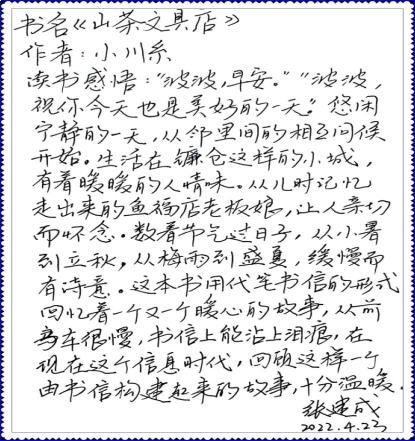 书名《山茶文具店》
作者:小川糸
读书感悟:"波波,早安。""波波,
祝你今天也是美好的一天。"悠闲
宁静的一天,从邻里间的相互问候
开始。生活在镰仓这样的小城,
有着暖暖的人情味。从儿时记忆
走出来的鱼福店老板娘,让人亲切
而怀念。数着节气过日子,从小暑
到立秋,从梅雨到盛夏,缓慢而
有诗意。这本书用代笔书信的形式
回忆着一个又一个暖心的故事,从前
马车很慢,书信上能沾上泪痕,在
现在这个信息时代,回顾这样一个
由书信构建起来的故事,十分温暖.
张建成
2022.4.23